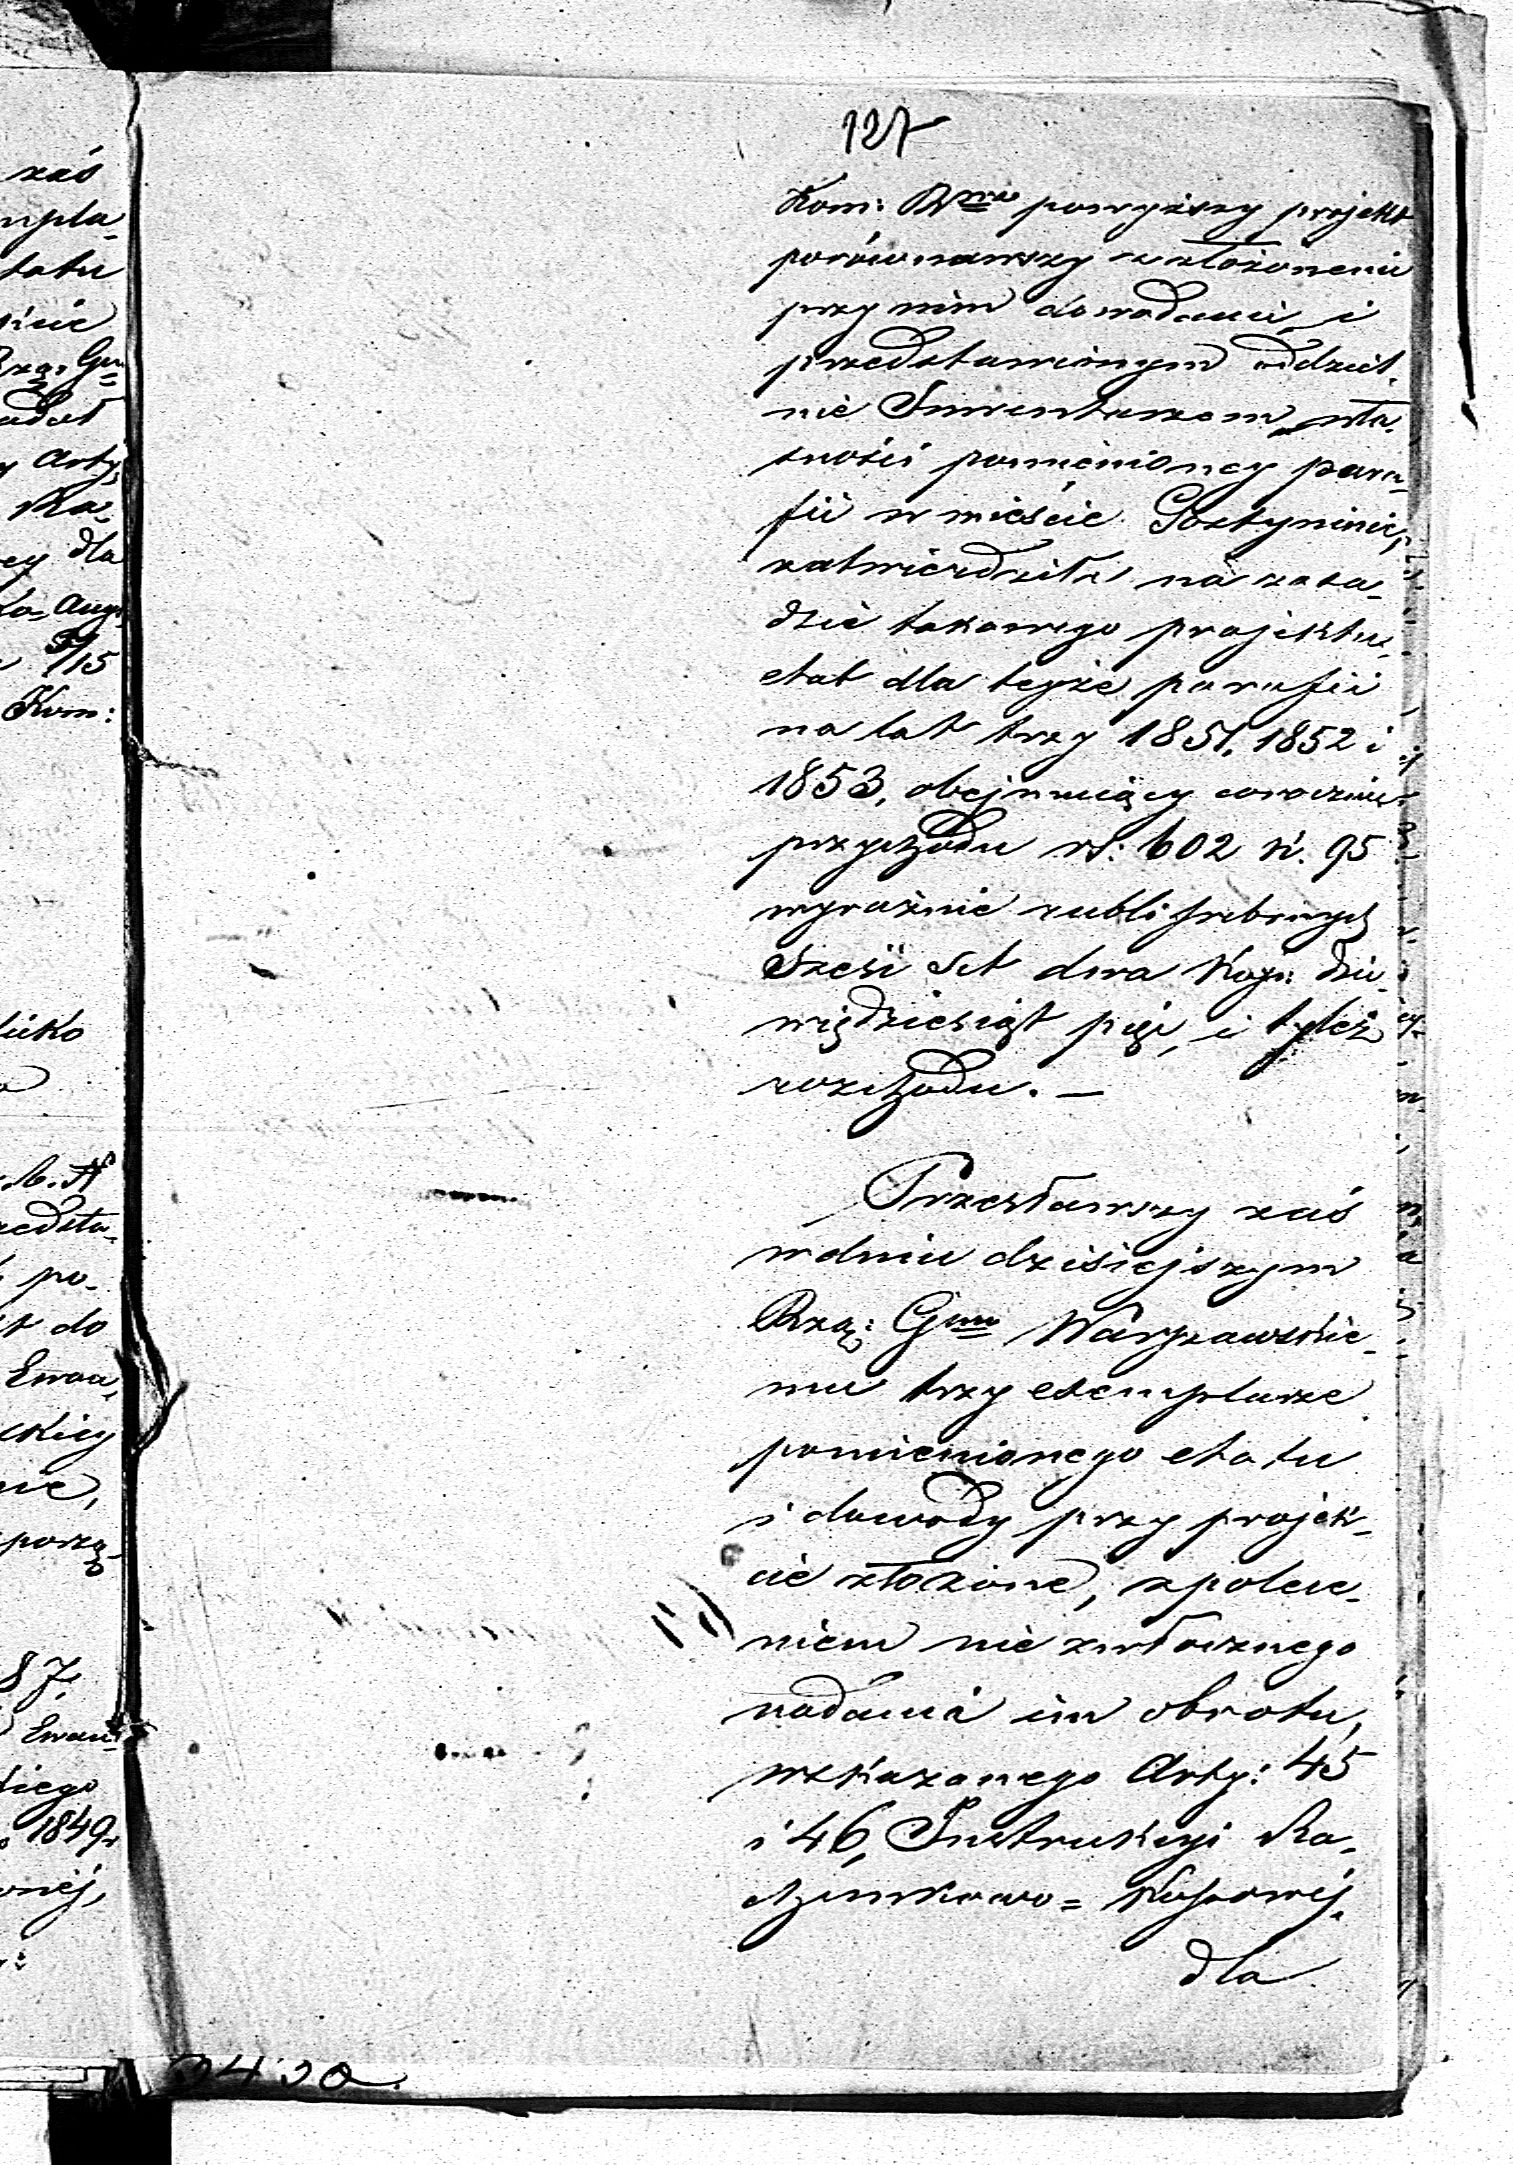 127
Kom: Rwa powyższy projekt
porównawszy z złożonemi
przy nim dowodami, i
przedstawionym oddziel-
nie Inwentarzem wła-
sności pomienioney para-
fii w mieście Gostyninie,
zatwierdziła na zasa-
dzie takowego projektu,
etat dla teyże parafii
na lat trzy 1851, 1852 i
1853, obejmuiący corocznie
przychodu rs: 602 k. 95
wyraźnie rubli srebrnych
Sześć Set dwa Kop: dzie-
więdziesiąt pięć, i tyleż
rozchodu. —
Przesławszy zaś
w dniu dzisiejszym
Rzą: Gmu Warszawskie-
mu trzy exemplarze
pomienionego etatu
i dowody przy projek-
cie złożone, z polece-
niem nie zwłocznego
nadania im obrotu,
wskazanego Arty: 45
i 46, Instrukcyi Ra-
chunkowo = Kassowéj,
dla
zaś
mpla-
tatu
Rzą: Gu
Arty:
Ra-
ey dla
Aug:
3/15
Kom:
po-
do
Ewan-
skiey
nie,
porzą-
87.
Ewan-
kiego
1849.